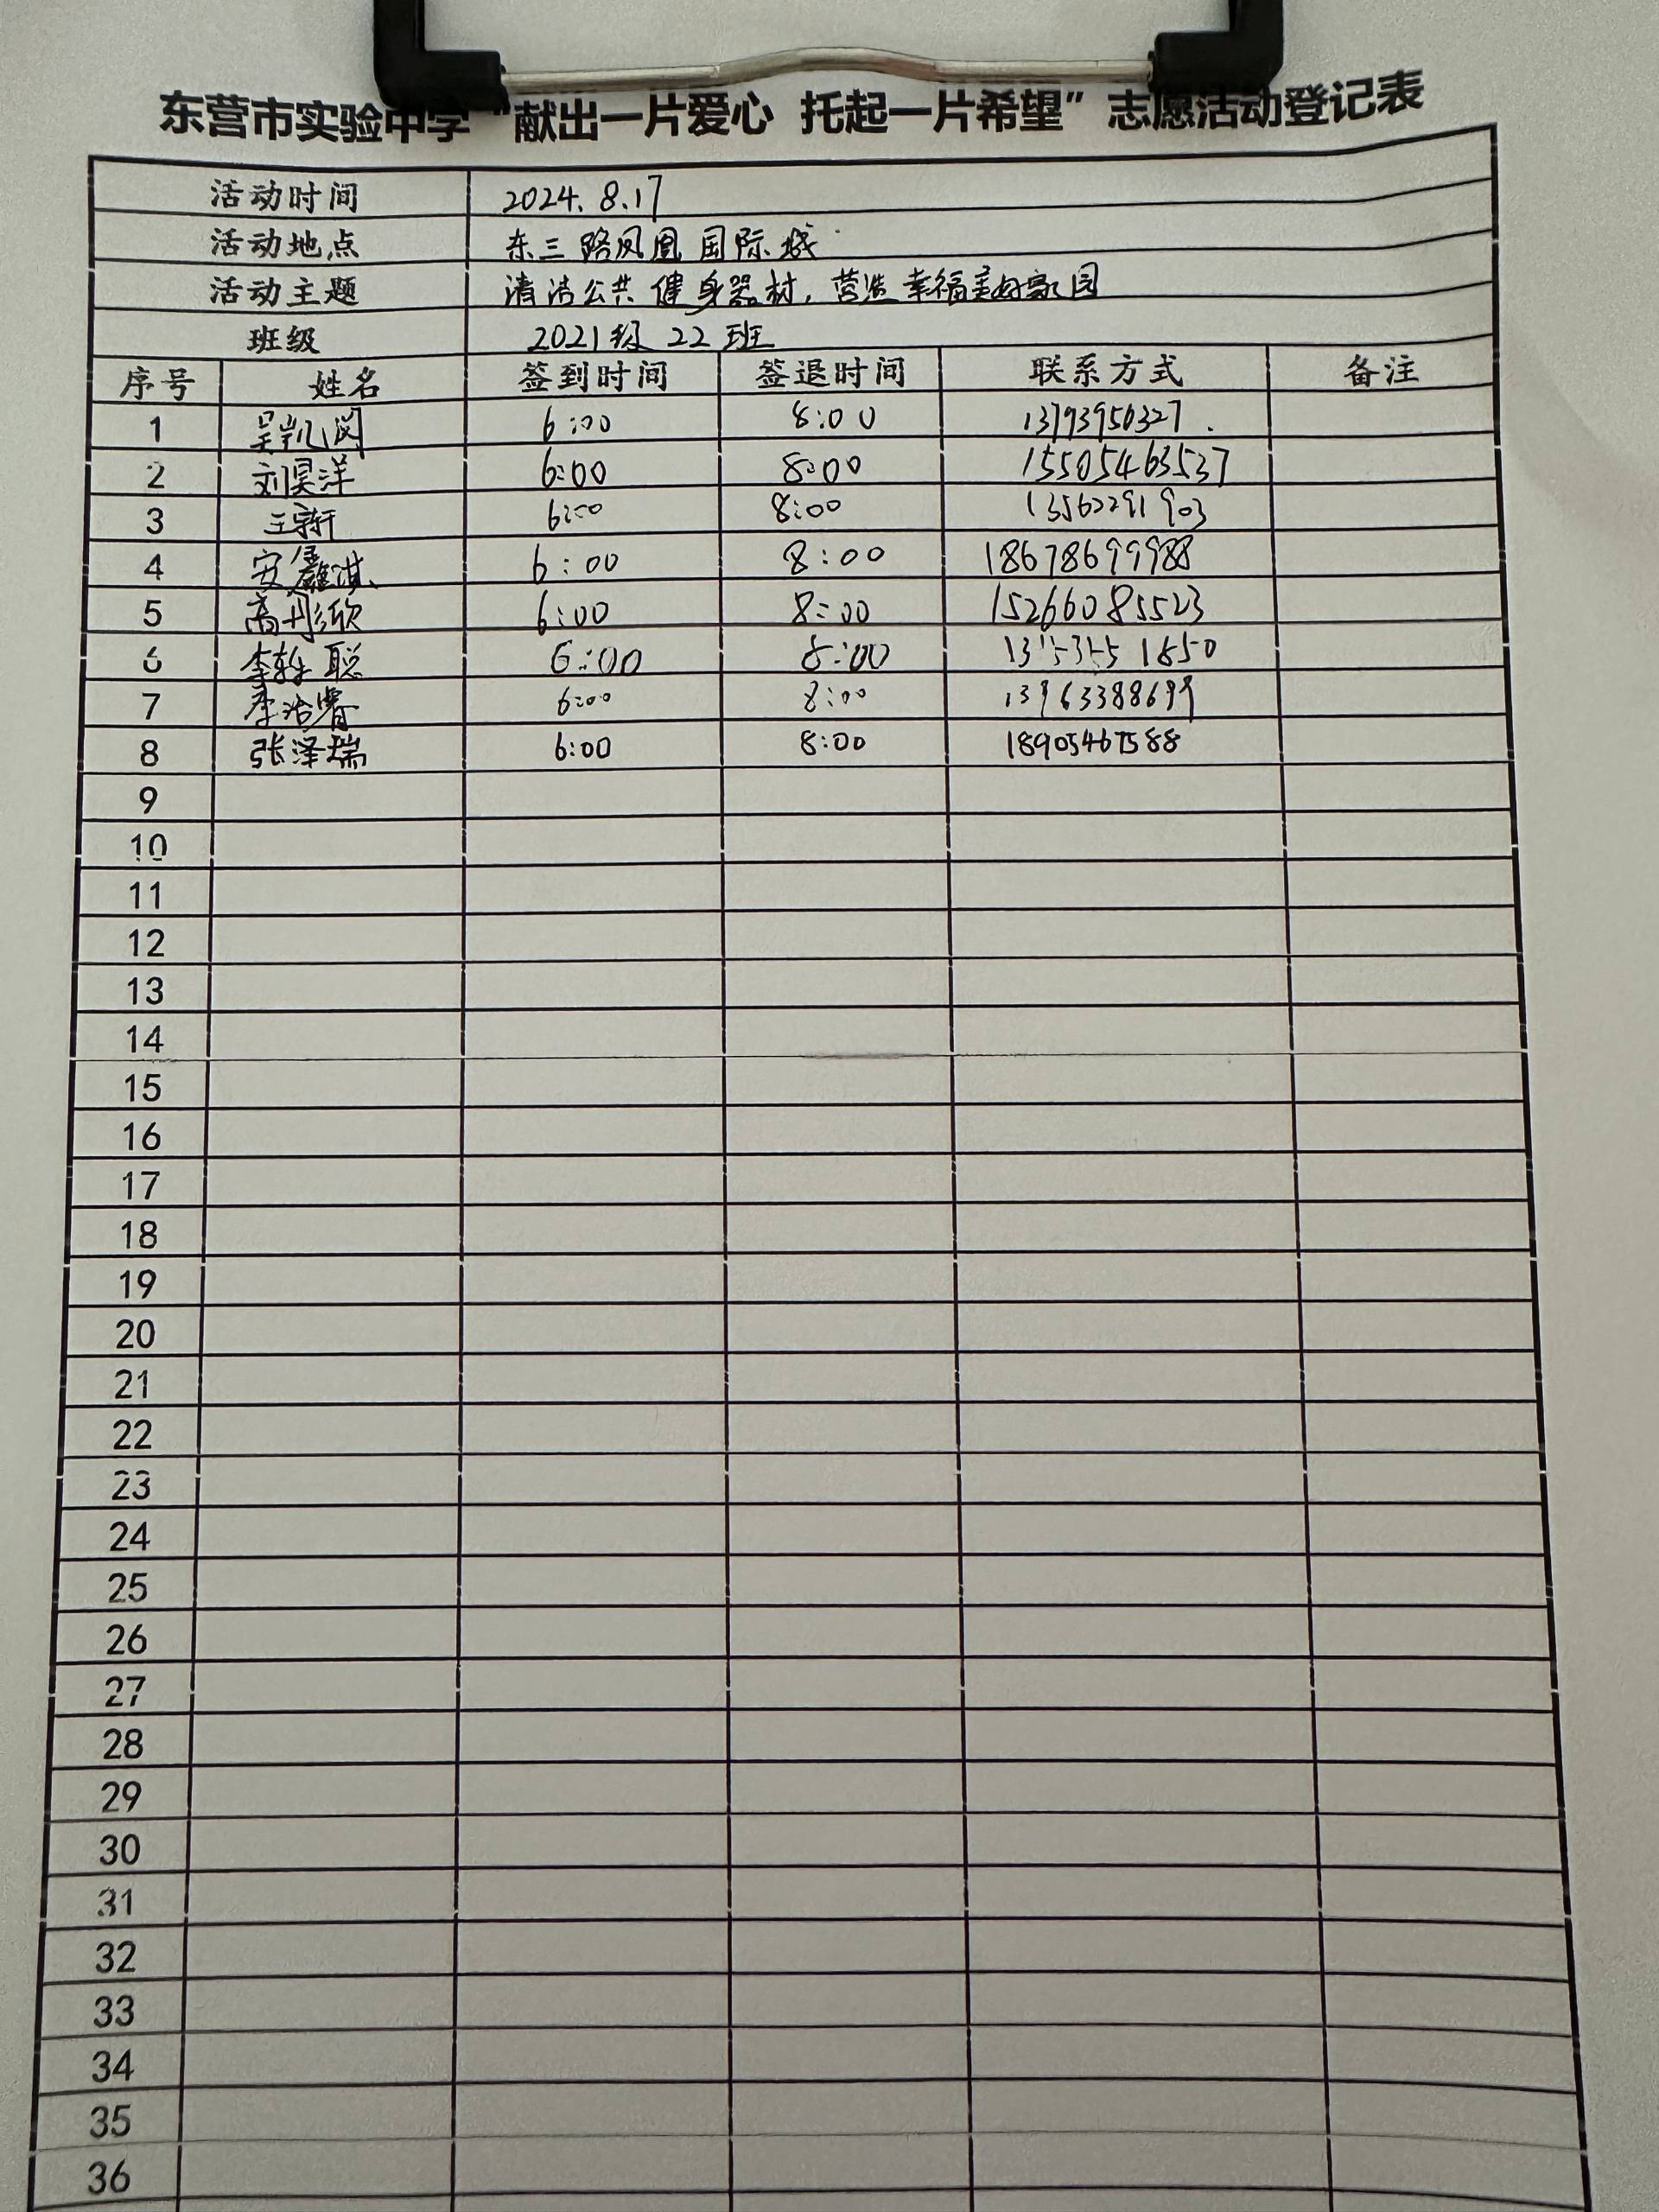 东营市实验中学“献出一片爱心 托起一片希望”志愿活动登记表
活动时间 2024.8.17
活动地点 东三路凤凰国际城
活动主题 清洁公共健身器材，营造幸福美好家园
班级 2021级22班
序号 姓名 签到时间 签退时间 联系方式 备注
1 吴凯闵 6:00 8:00 13793950327
2 刘昊洋 6:00 8:00 15505463537
3 王宇轩 6:00 8:00 13562291903
4 安 淇 6:00 8:00 18678699988
5 高彤欣 6:00 8:00 15266085523
6 李 聪 6:00 8:00
7 李浩睿 6:00 8:00 13963388699
8 张泽瑞 6:00 8:00 18905467588
9
10
11
12
13
14
15
16
17
18
19
20
21
22
23
24
25
26
27
28
29
30
31
32
33
34
35
36